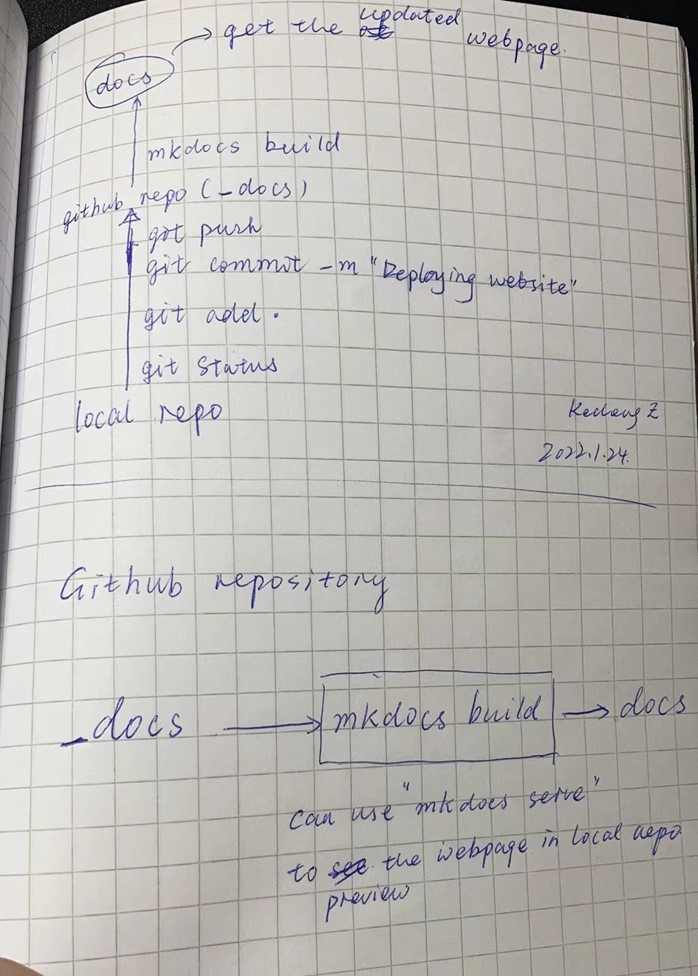 get the updated webpage.
docs
mkdocs build
github repo (_docs)
git push
git commit -m "Deploying website"
git add .
git status
local repo
Z
2022.1.24.
Github repository
_docs
mkdocs build
docs
can use "mkdocs serve"
to the webpage in local repo
preview